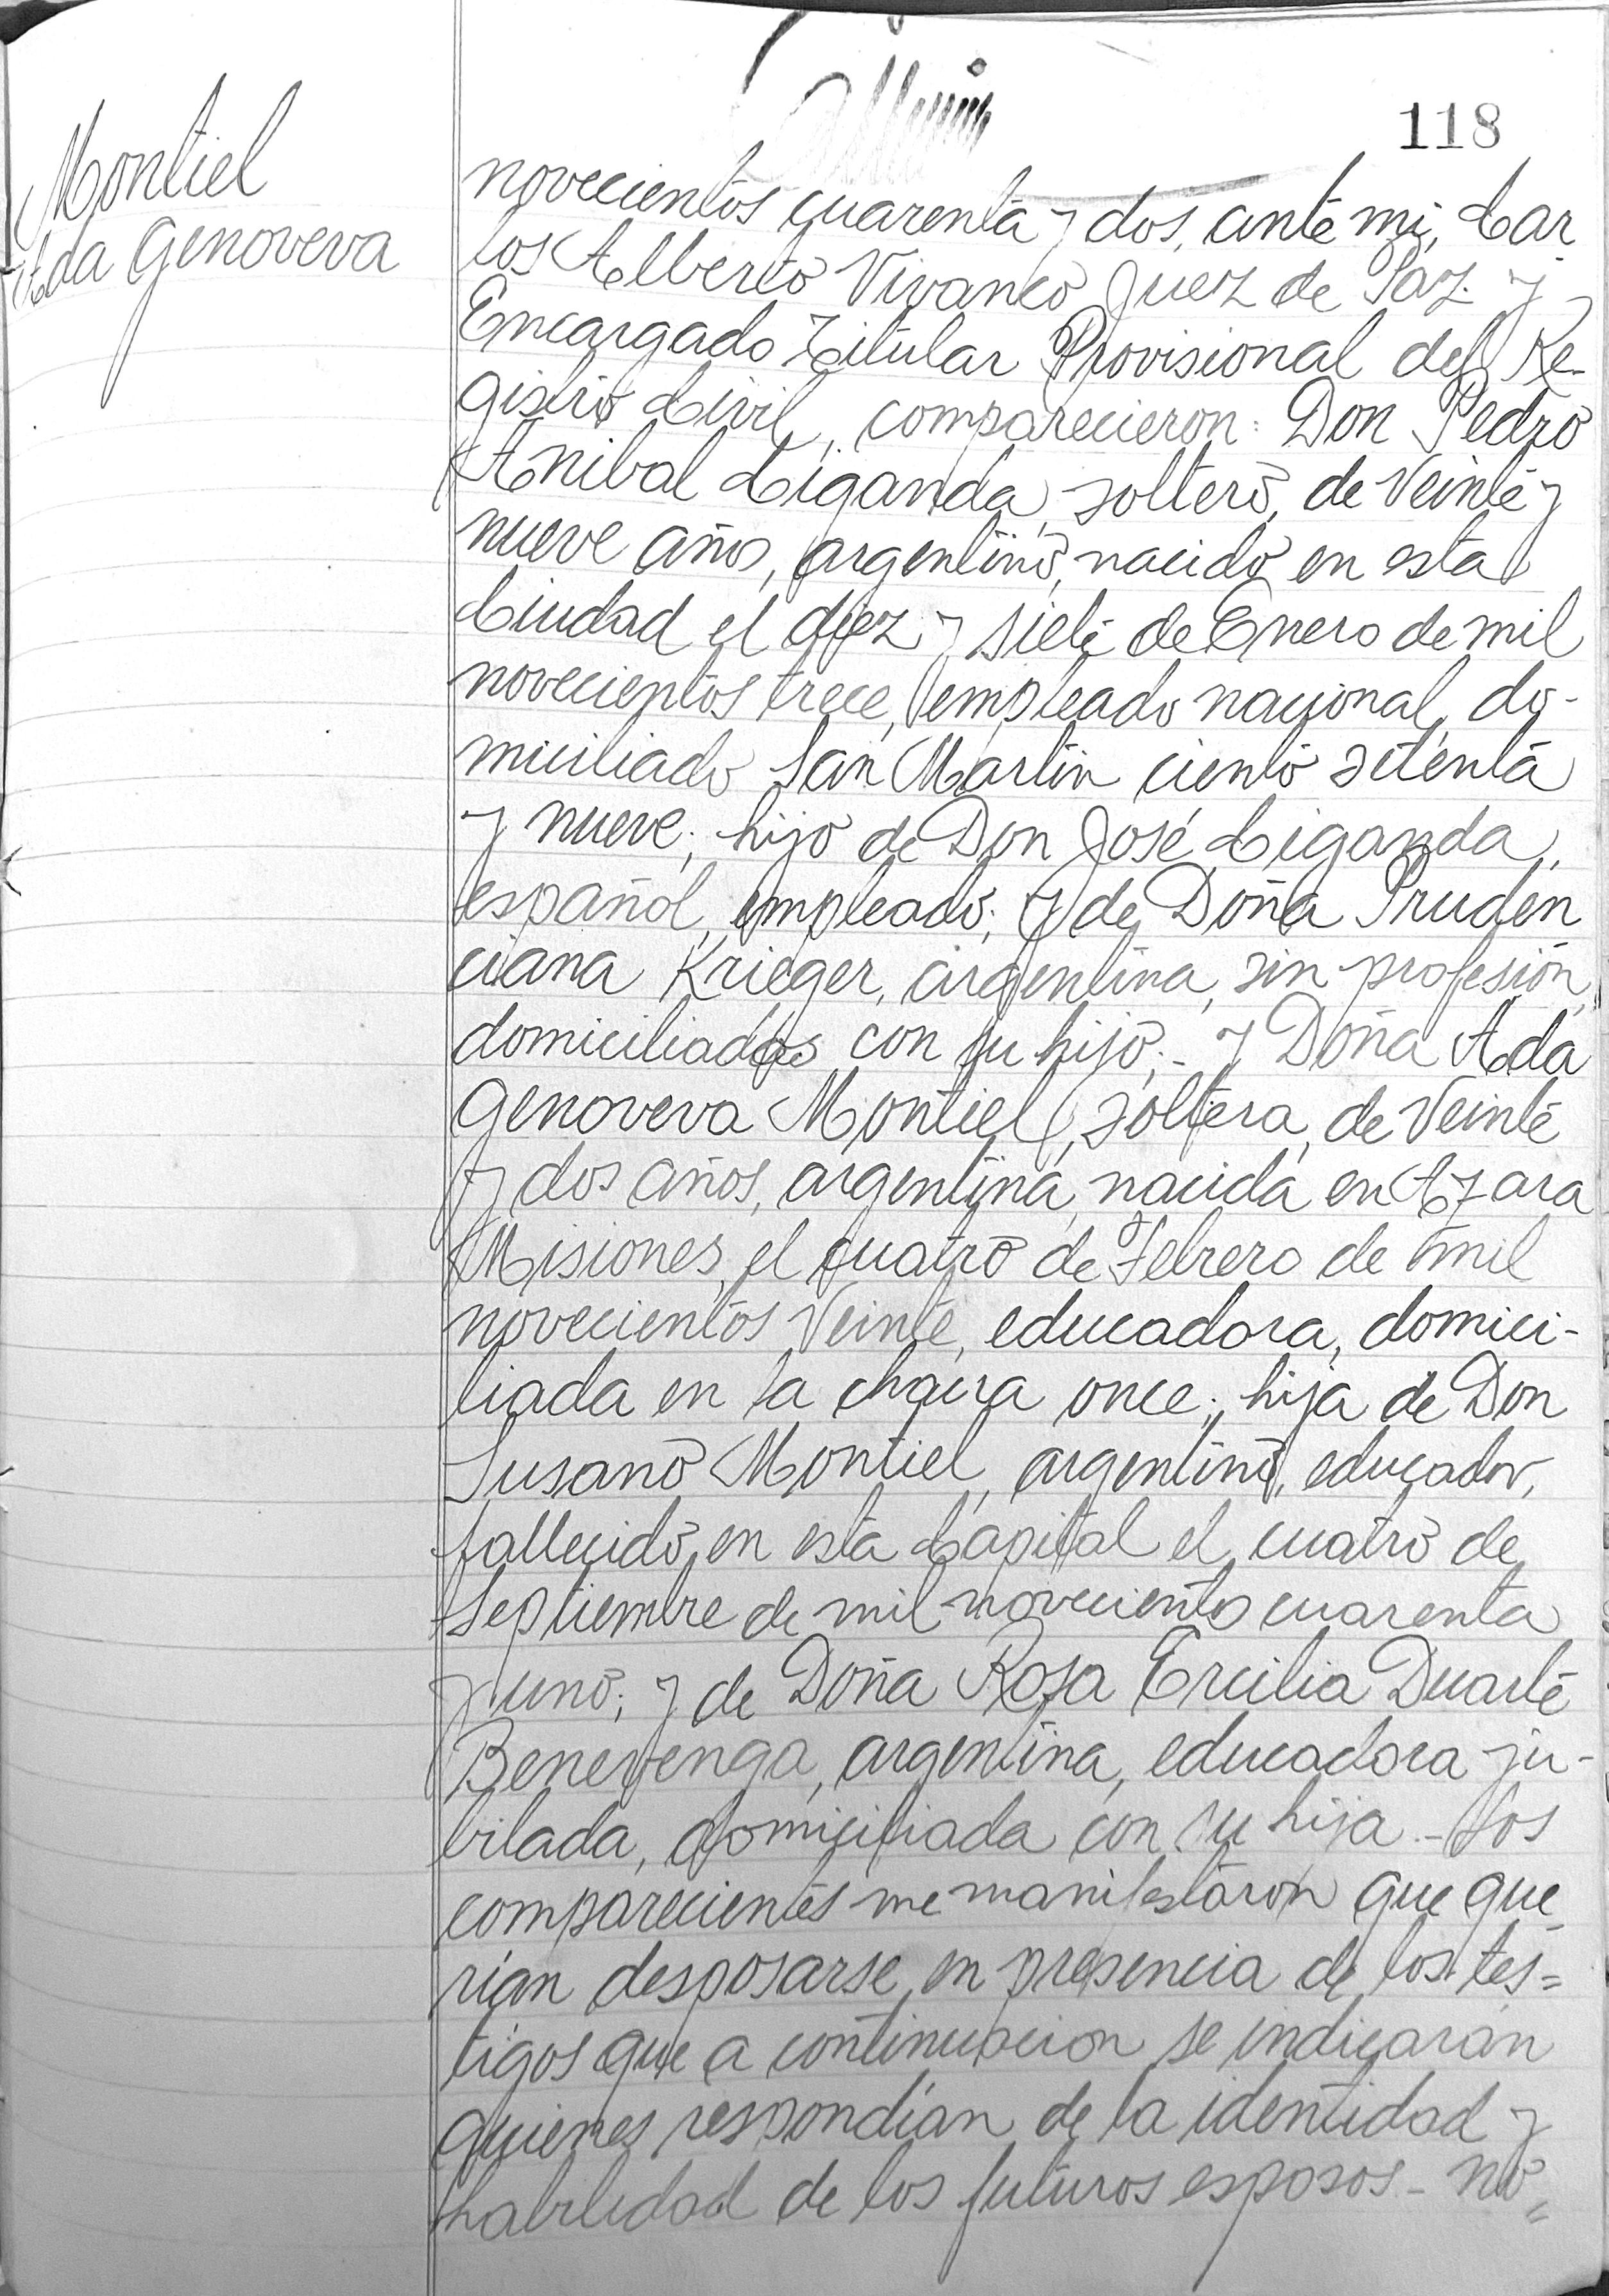 118
Montiel
Ada Genoveva
novecientos cuarenta y dos, ante mi, Car
los Alberto Vivanco Juez de Paz y
Encargado Titular Provisional del Re-
gistro Civil, comparecieron: Don Pedro
Anibal Ciganda, soltero, de Veinte y
nueve años, argentino, nacido en esta
Ciudad el diez y siete de Enero de mil
novecientos trece, empleado nacional, do-
miciliado San Martín ciento setenta
y nueve; hijo de Don José Ciganda,
español, empleado; y de Doña Pruden
ciana Krieger, argentina, sin profesión,
domiciliados con su hijo;- y Doña Ada
Genoveva Montiel, soltera, de Veinte
y dos años, argentina, nacida en Azara
Misiones, el cuatro de Febrero de mil
novecientos Veinte, educadora, domici-
liada en la chacra once; hija de Don
Susano Montiel, argentino, educador,
fallecido en esta Capital el cuatro de
Septiembre de mil novecientos cuarenta
y uno; y de Doña Rosa Ercilia Duarte
Benevenga, argentina, educadora ju-
bilada, domiciliada con su hija.- Los
comparecientes me manifestaron que que_
rían desposarse en presencia de los tes=
tigos que a continuacion se indicarán
quienes respondían de la identidad y
habilidad de los futuros esposos - No=